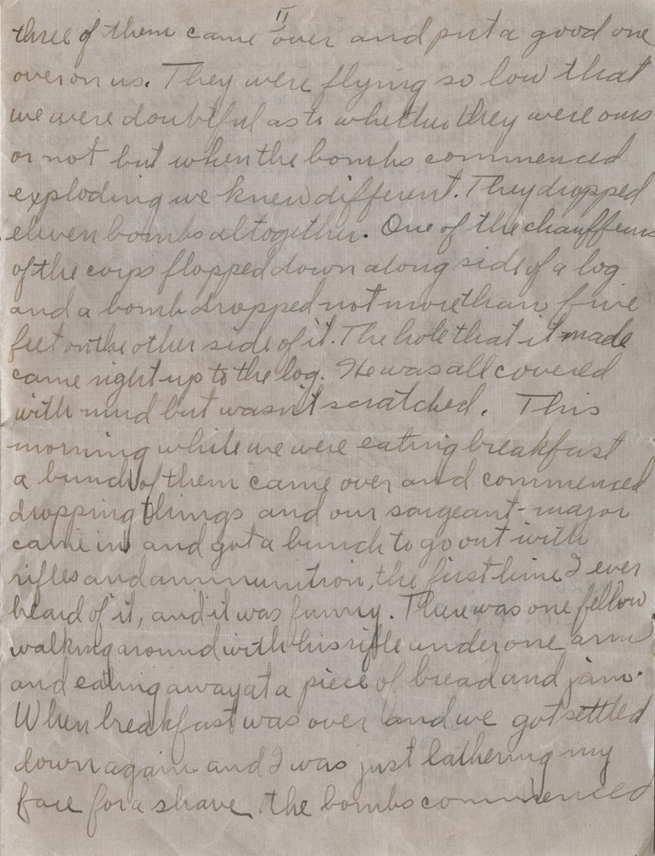 II
three of them came over and put a good one
over on us. They were flying so low that
we were doubtful as to whether they were ours
or not but when the bombs commenced
exploding we knew different. They dropped
eleven bombs altogether. One of the chauffeurs
of the corps flopped down along side of a log
and a bomb dropped not more than five
feet on the other side of it. The hole that it made
came right up to the log. He was all covered
with mud but wasn't scratched. This
morning while we were eating breakfast
a bunch of them came over and commenced
dropping things and our sargeant-major
came in and got a bunch to go out with
rifles and ammunition, the first time I ever
heard of it, and it was funny. There was one fellow
walking around with his rifle under one arm
and eating away at a piece of bread and jam.
When breakfast was over and we got settled
down again and I was just lathering my
face for a shave the bombs commenced